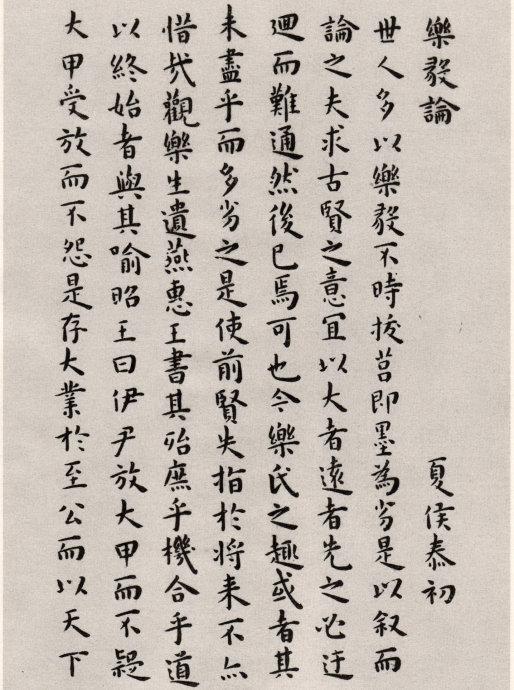 樂毅論
夏侯泰初
世人多以樂毅不時拔莒即墨為劣是以叙而
論之夫求古賢之意宜以大者遠者先之必迂
迴而難通然後已焉可也今樂氏之趣或者其
未盡乎而多劣之是使前賢失指於將来不亦
惜哉觀樂生遺燕惠王書其殆庶乎機合乎道
以終始者與其喻昭王曰伊尹放大甲而不疑
大甲受放而不怨是存大業於至公而以天下